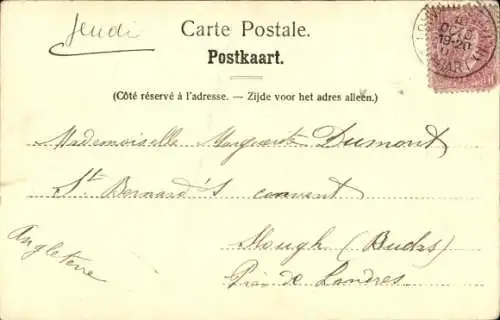 Jeudi
Carte Postale.
Postkaart.
(Côté réservé à l'adresse. — Zijde voor het adres alleen.)
Mademoiselle Marguerite Dumont
St Bernard's convent
Slough (Bucks)
Près de Londres
Angleterre